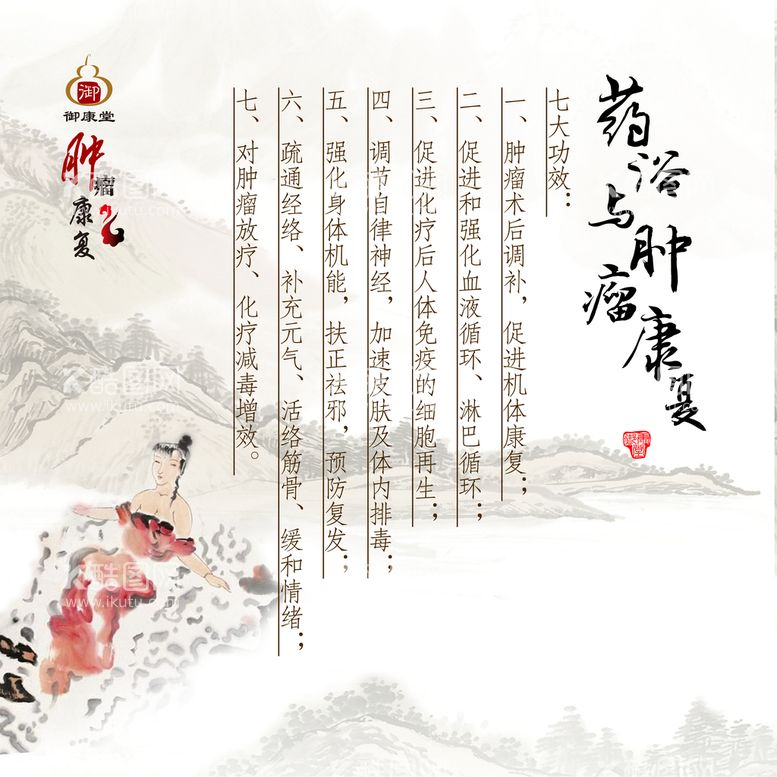 药浴与肿瘤康复
七大功效：
一、肿瘤术后调补，促进机体康复；
二、促进和强化血液循环、淋巴循环；
三、促进化疗后人体免疫的细胞再生；
四、调节自律神经，加速皮肤及体内排毒；
五、强化身体机能，扶正祛邪，预防复发；
六、疏通经络、补充元气、活络筋骨、缓和情绪；
七、对肿瘤放疗、化疗减毒增效。
御
御康堂
肿瘤康复
酷图网
www.ikutu.com